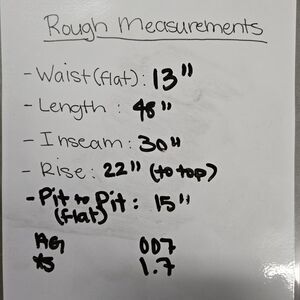 Rough Measurements
- Waist (flat): 13"
- Length: 48"
- Inseam: 30"
- Rise: 22" (to top)
- Pit to Pit: 15"
(flat)
AG 007
1.7